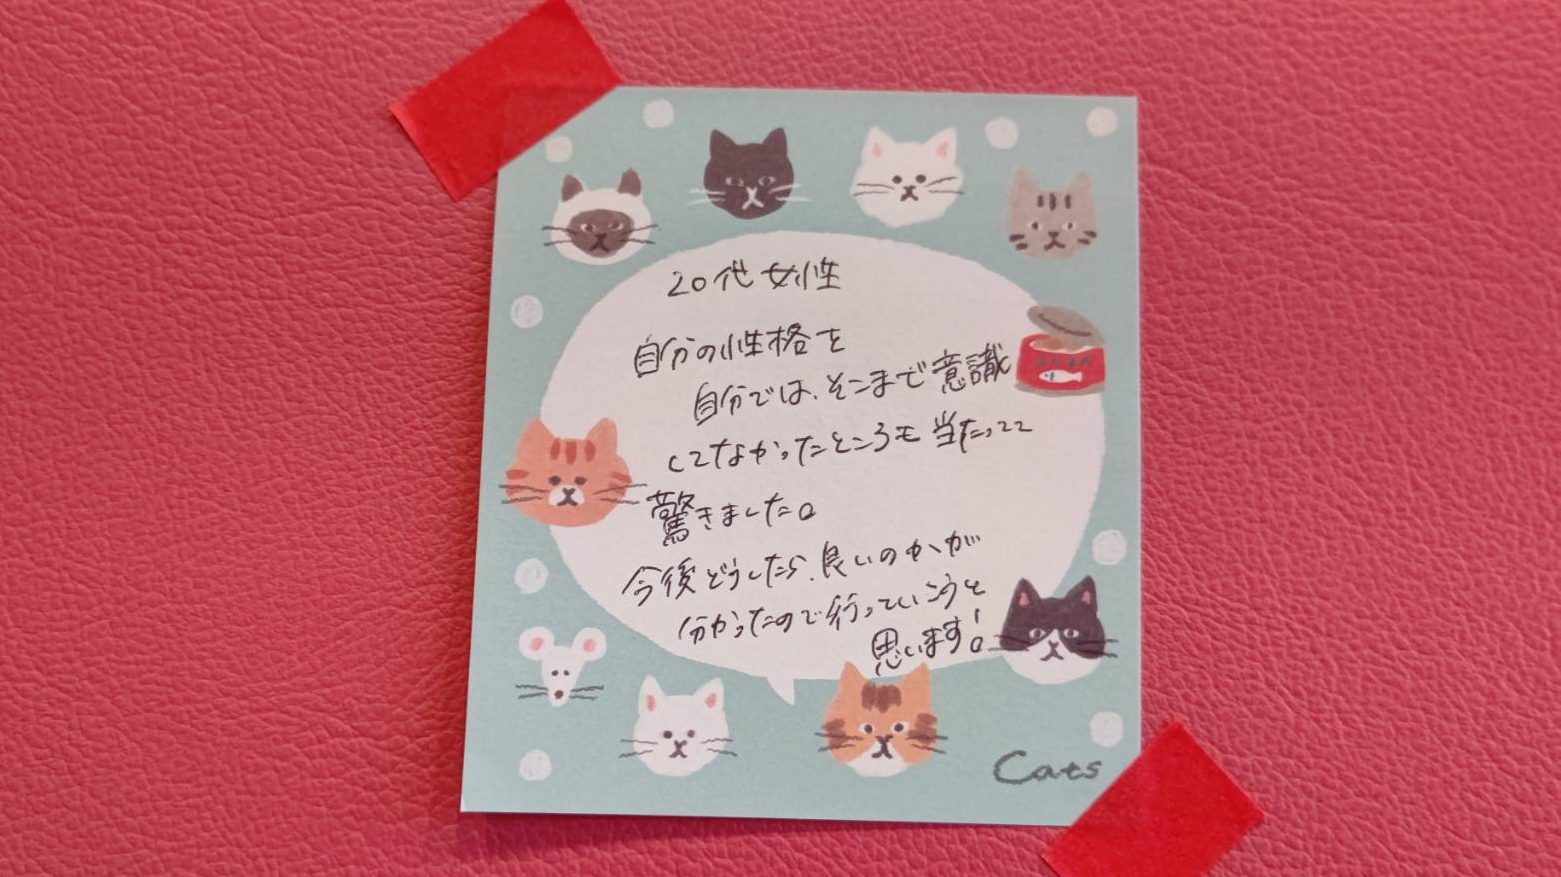 20代女性
自分の性格を
自分では、そこまで意識
してなかったところも当たってて
驚きました。
今後どうしたら、良いのかが
分かったので行っていこうと
思います!
Cats